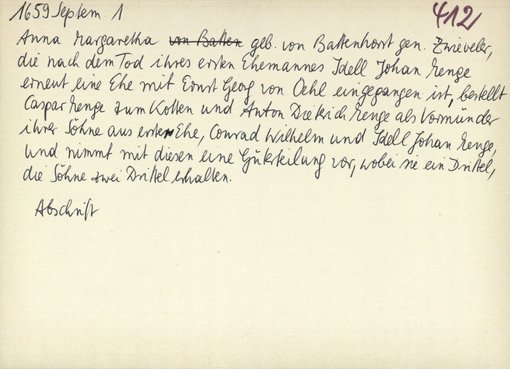 1659 Septem 1 412
Anna Margaretha von Batten geb. von Battenhorst gen. Zwieveler,
die nach dem Tod ihres ersten Ehemannes Idell Johan Menge
erneut eine Ehe mit Ernst Georg von Oehl eingegangen ist, bestellt
Caspar Menge zum Kotten und Anton Dietrich Menge als Vormünder
ihrer Söhne aus erster Ehe, Conrad Wilhelm und Idell Johan Menge,
und nimmt mit diesen eine Güterteilung vor, wobei sie ein Drittel,
die Söhne zwei Drittel erhalten.
Abschrift